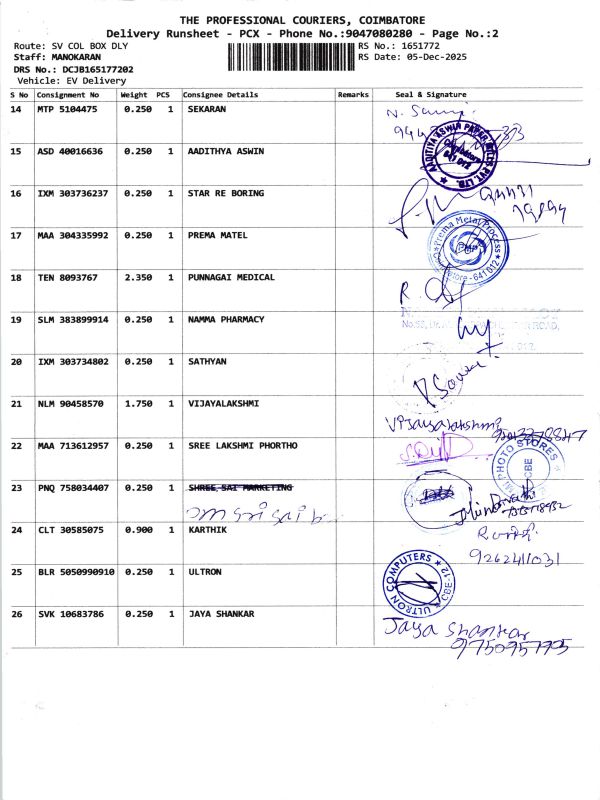 THE PROFESSIONAL COURIERS, COIMBATORE
Delivery Runsheet - PCX - Phone No.:9047080280 - Page No.:2
Route: SV COL BOX DLY
RS No.: 1651772
Staff: MANOKARAN
RS Date: 05-Dec-2025
DRS No.: DCJB165177202
Vehicle: EV Delivery
S No Consignment No Weight PCS Consignee Details Remarks Seal & Signature
14 MTP 5104475 0.250 1 SEKARAN
15 ASD 40016636 0.250 1 AADITHYA ASWIN
AADITIYA ASWIN PAPER MILLS PVT. LTD. Coimbatore 641 012
16 IXM 303736237 0.250 1 STAR RE BORING
17 MAA 304335992 0.250 1 PREMA MATEL
Prema Metal Process PMP Coimbatore - 641 012
18 TEN 8093767 2.350 1 PUNNAGAI MEDICAL
19 SLM 383899914 0.250 1 NAMMA PHARMACY
ROAD,
20 IXM 303734802 0.250 1 SATHYAN
21 NLM 90458570 1.750 1 VIJAYALAKSHMI
Vijayalakshmi
22 MAA 713612957 0.250 1 SREE LAKSHMI PHORTHO
PHOTO STORES CBE
23 PNQ 758034407 0.250 1 SHREE SAI MARKETING
om sri sai
24 CLT 30585075 0.900 1 KARTHIK
9262411031
25 BLR 5050990910 0.250 1 ULTRON
ULTRON COMPUTERS CBE-12
26 SVK 10683786 0.250 1 JAYA SHANKAR
Jaya Shankar
9750957795